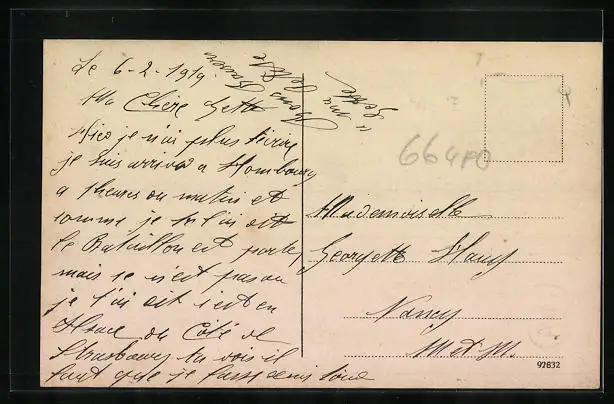 Le 6-2-1919.
Ma Chère Gette
Hier je n'ai plus écrire
je suis arrivé a Hombourg
a heures du matin et
comme je tu l'ai dit
le Bataillon est partie
mais ce n'est pas ou
je l'ai dit c'est en
Alsace du Coté de
Strasbourg tu vois il
faut que je fasse
Mademoiselle
Georgette
Nancy
M et M.
664PO
92832